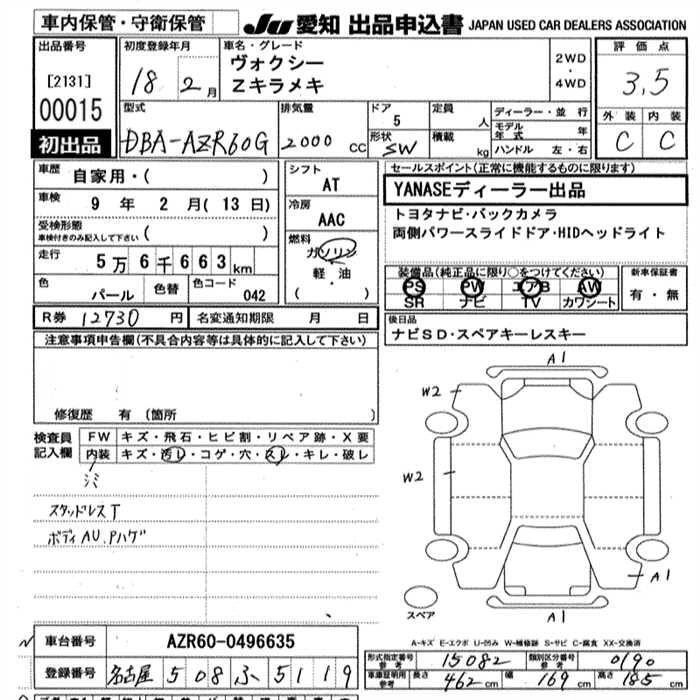 車内保管・守衛保管
JU 愛知 出品申込書 JAPAN USED CAR DEALERS ASSOCIATION
出品番号
[2131]
00015
初出品
初度登録年月
18 2 月
車名・グレード
ヴォクシー
Zキラメキ
2WD
・
4WD
評価点
3.5
外装 内装
C C
型式
DBA-AZR60G
排気量
2000 CC
ドア
5
形状
SW
定員
人
積載
kg
ディーラー・並行
モデル年式 年
ハンドル 左・右
車歴
自家用・( )
車検
9 年 2 月( 13 日)
受検形態
車検付きのみ記入して下さい ( )
走行
5万6千663km
色
パール
色替
色コード
042
シフト
AT
冷房
AAC
燃料
ガソリン
軽・油
( )
セールスポイント(正常に機能するものに限ります)
YANASEディーラー出品
トヨタナビ・バックカメラ
両側パワースライドドア・HIDヘッドライト
装備品(純正品に限り○をつけてください)
PS PW エアB AW
SR ナビ TV カワシート
新車保証書
有・無
R券 12730 円 名変通知期限 月 日
後日品
ナビSD・スペアキーレスキー
注意事項申告欄(不具合内容等は具体的に記入して下さい)
修復歴 有 (箇所 )
検査員
記入欄
FW キズ・飛石・ヒビ割・リペア跡・X要
内装 キズ・汚レ・コゲ・穴・スレ・キレ・破レ
シミ
スタッドレスT
ボディAU.Pハゲ
A1
W2
W2
A1
A1
スペア
A-キズ E-エクボ U-凹み W-補修跡 S-サビ C-腐食 XX-交換済
車台番号 AZR60-0496635
登録番号 名古屋 508 ふ 5119
形式指定番号
参考
15082
類別区分番号
参考
0190
車車証明用
参考
長さ 462 cm 幅 169 cm 高さ 185 cm